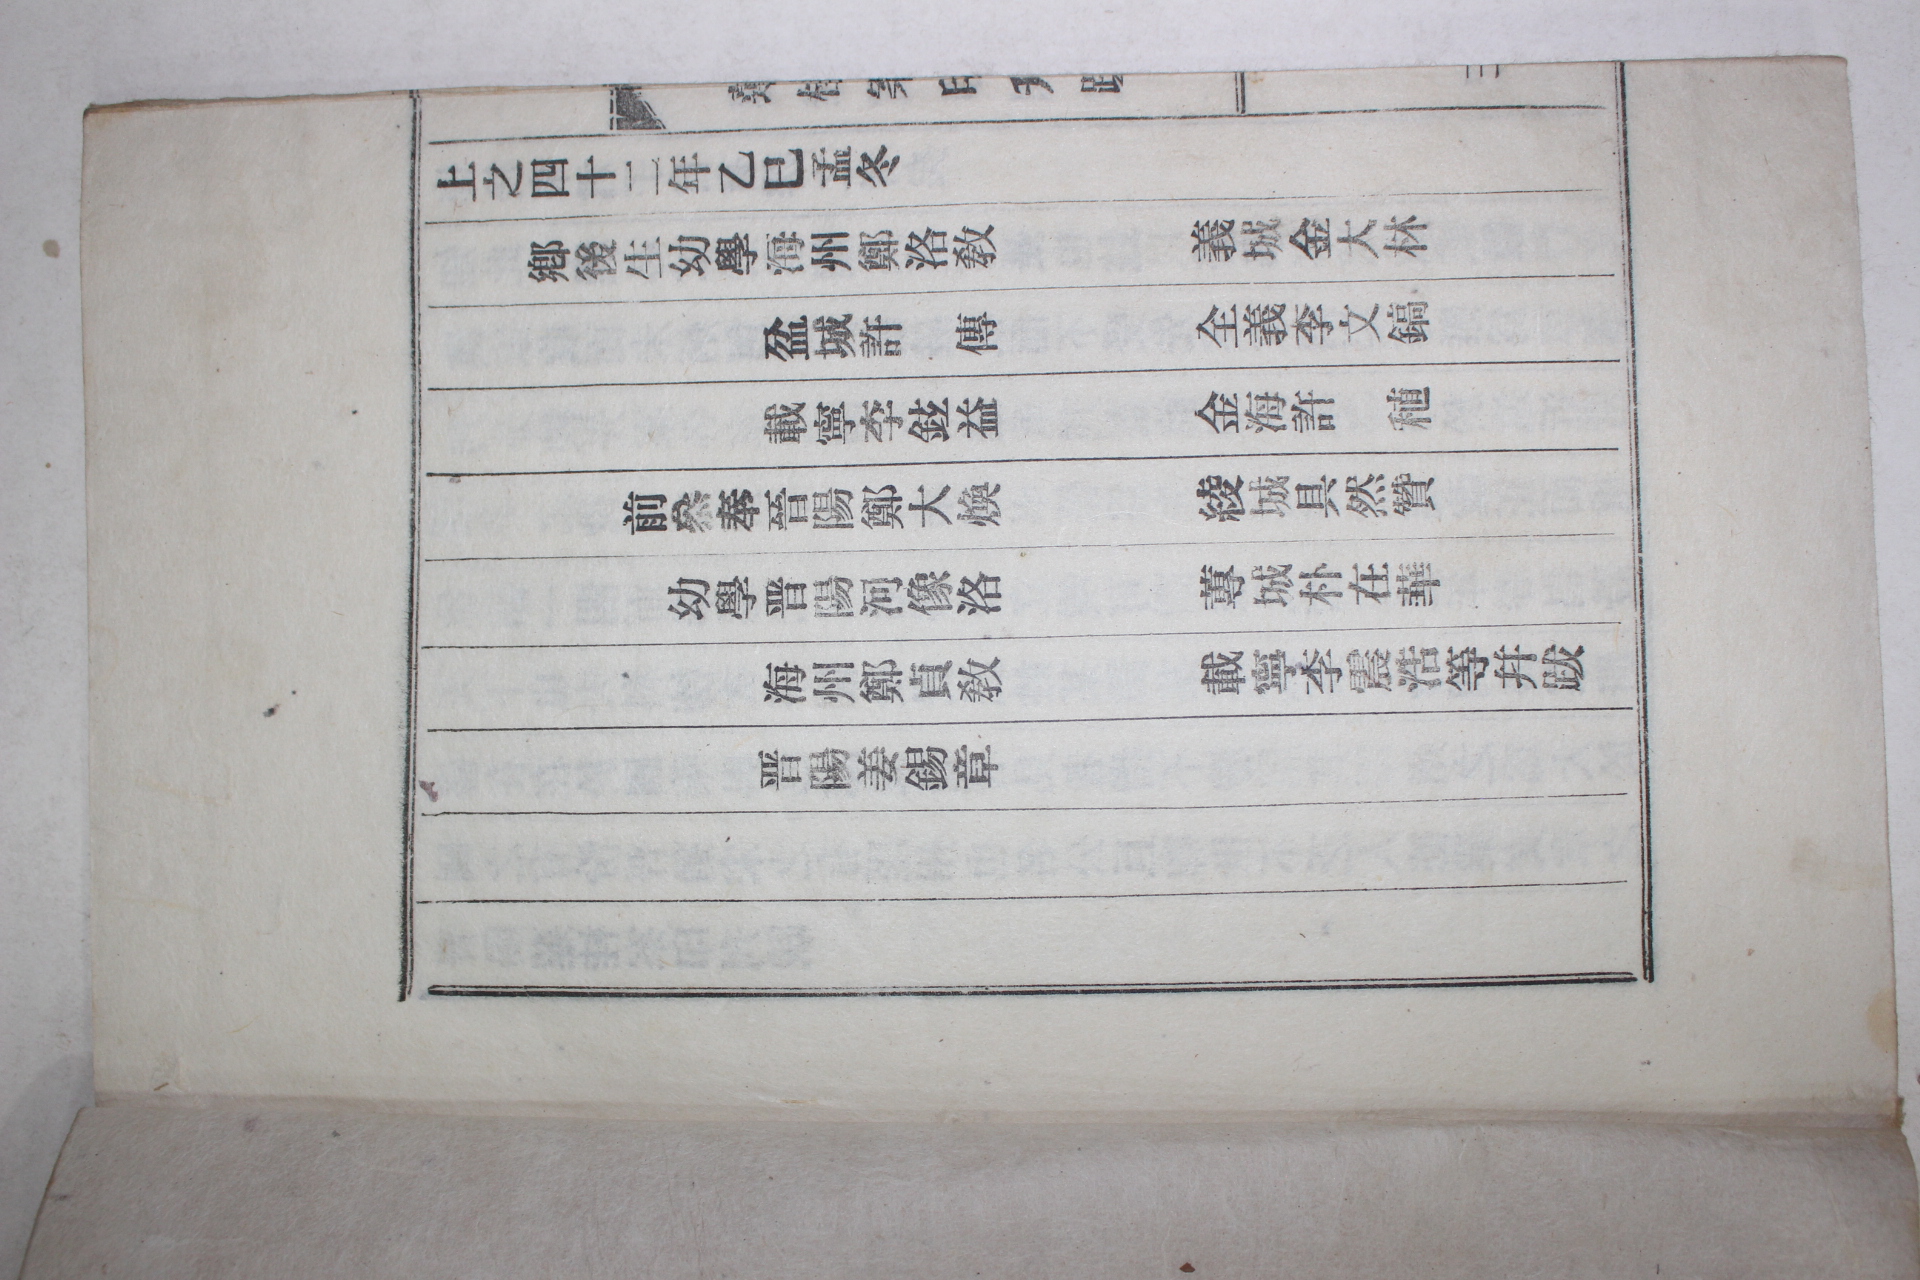 上之四十二年乙巳孟冬
鄕後生幼學海州鄭洛敎 義城金大林
盆城許 傳 全義李文鎬
載寧李鉉益 金海許 稙
前叅奉晉陽鄭大煥 綾城具然贊
幼學晋陽河像洛 蓴城朴在華
海州鄭貞敎 載寧李震浩等幷跋
晋陽姜錫章